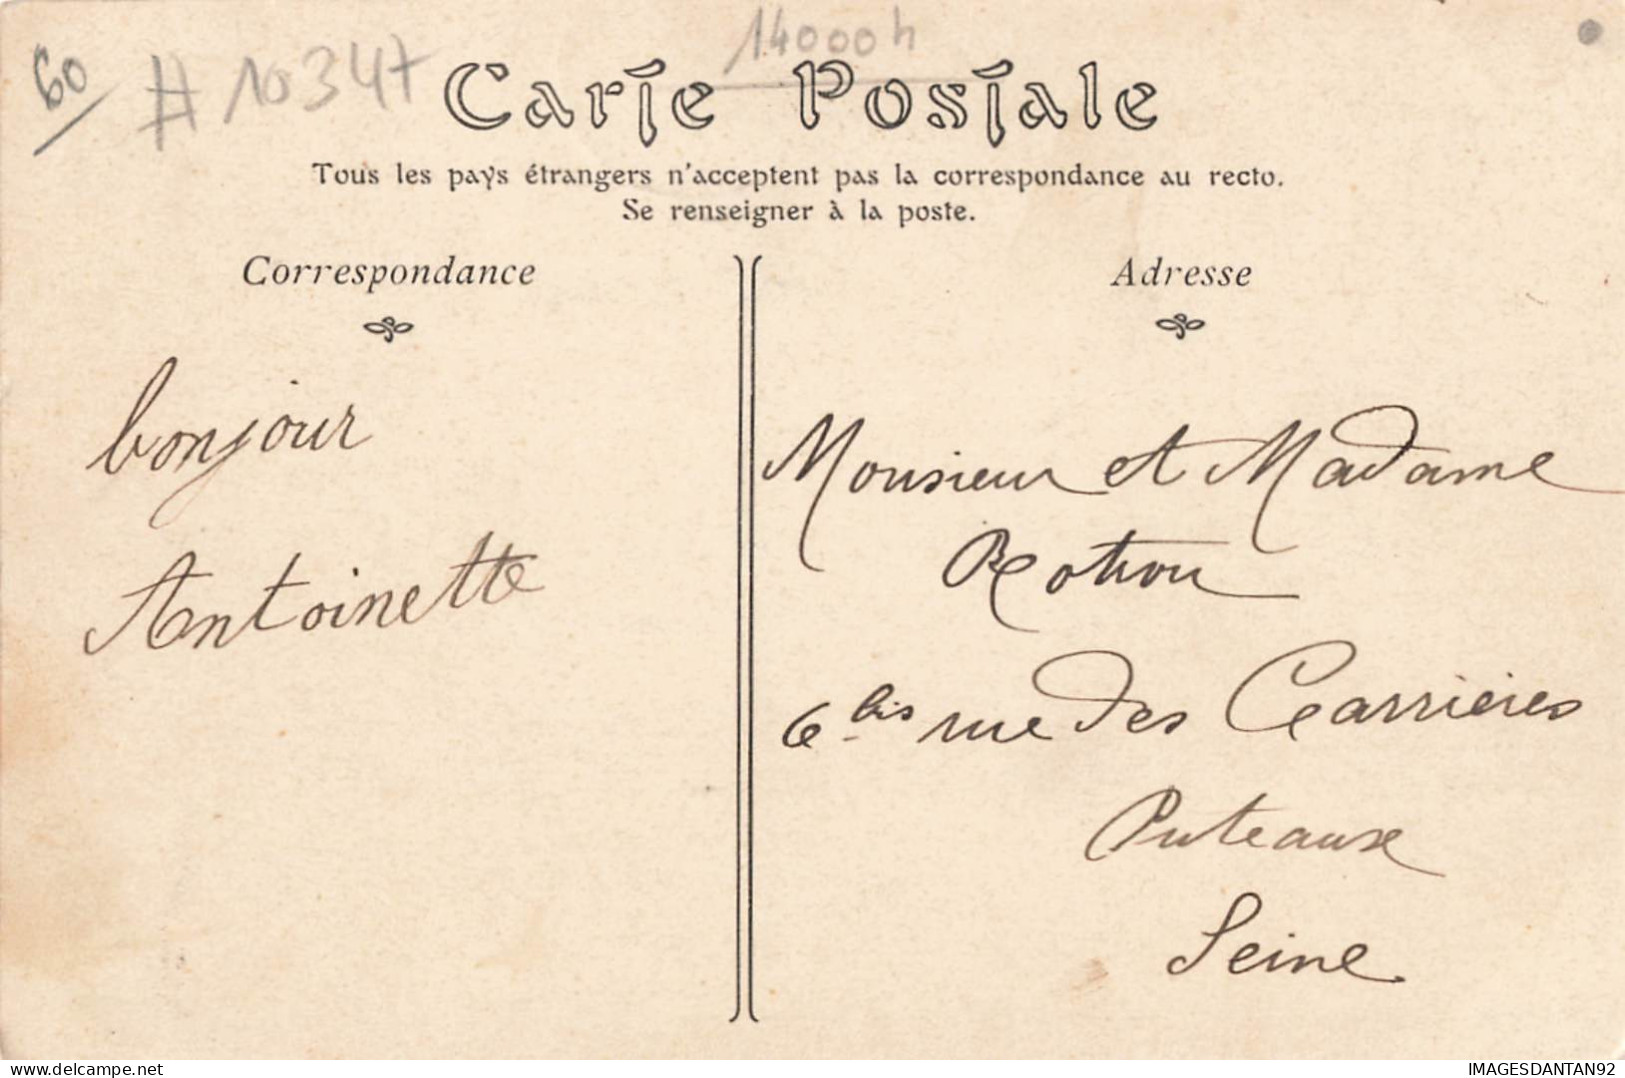 60
#10347
14000h
Carte Postale
Tous les pays étrangers n'acceptent pas la correspondance au recto.
Se renseigner à la poste.
Correspondance
bonjour
Antoinette
Adresse
Monsieur et Madame
Rotrou
6 bis rue des Carrières
Puteaux
Seine
delcampe.net
IMAGESDANTAN92